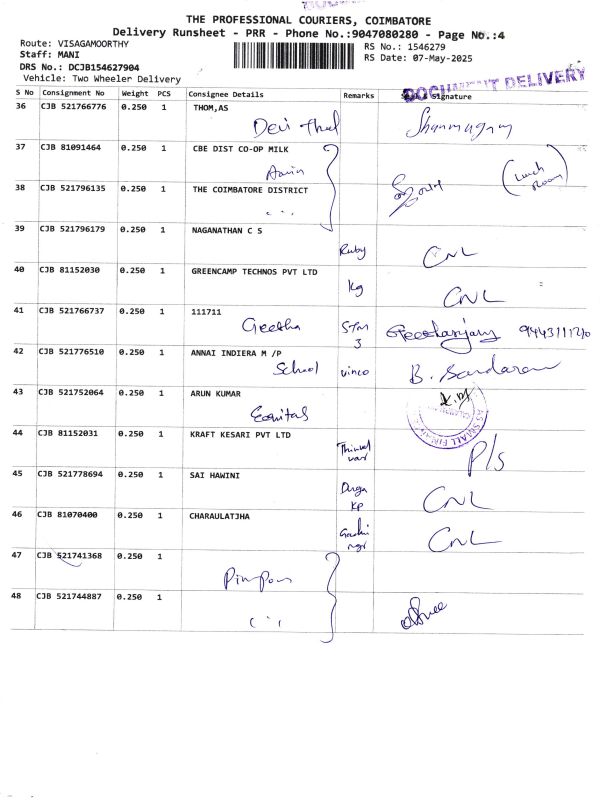 THE PROFESSIONAL COURIERS, COIMBATORE
Delivery Runsheet - PRR - Phone No.:9047080280 - Page No.:4
Route: VISAGAMOORTHY RS No.: 1546279
Staff: MANI RS Date: 07-May-2025
DRS No.: DCJB154627904
Vehicle: Two Wheeler Delivery
DOCUMENT DELIVERY
S No Consignment No Weight PCS Consignee Details Remarks & Signature
36 CJB 521766776 0.250 1 THOM,AS
Devi Shanmugam
37 CJB 81091464 0.250 1 CBE DIST CO-OP MILK
Aavin (Lunch Room)
38 CJB 521796135 0.250 1 THE COIMBATORE DISTRICT
39 CJB 521796179 0.250 1 NAGANATHAN C S
Ruby CNL
40 CJB 81152030 0.250 1 GREENCAMP TECHNOS PVT LTD
Kg CNL
41 CJB 521766737 0.250 1 111711
Geetha STM 3 Geetanjany
42 CJB 521776510 0.250 1 ANNAI INDIERA M /P
School vinco B. Sundaram
43 CJB 521752064 0.250 1 ARUN KUMAR
Equitas
SMALL FINANCE
44 CJB 81152031 0.250 1 KRAFT KESARI PVT LTD
P/S
45 CJB 521778694 0.250 1 SAI HAWINI
Durga KP CNL
46 CJB 81070400 0.250 1 CHARAULATJHA
Gandhi ngr CNL
47 CJB 521741368 0.250 1
Pin Pon
48 CJB 521744887 0.250 1